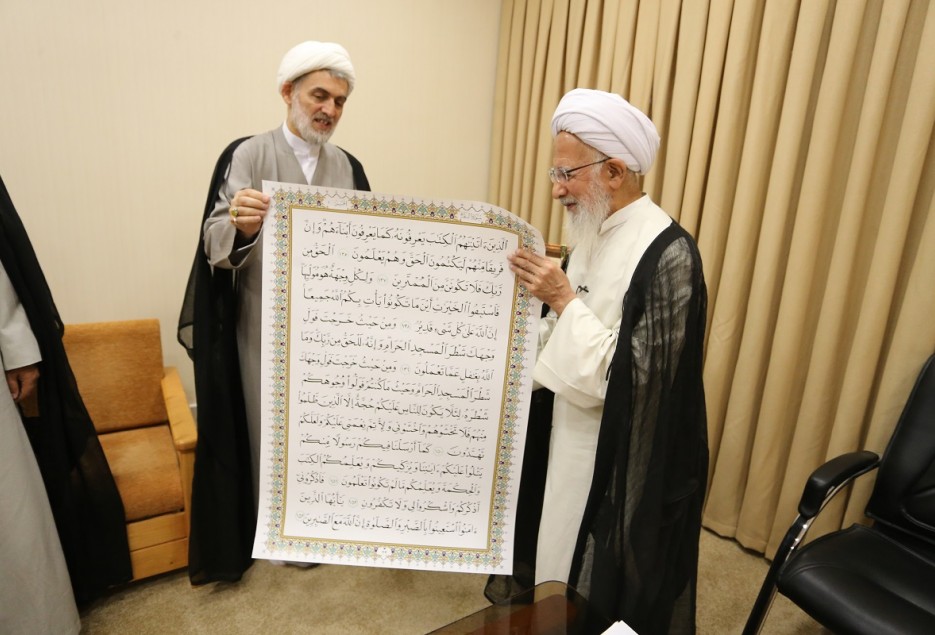 ٱلَّذِينَ ءَاتَيْنَٰهُمُ ٱلْكِتَٰبَ يَعْرِفُونَهُۥ كَمَا يَعْرِفُونَ أَبْنَآءَهُمْ وَإِنَّ
فَرِيقًا مِّنْهُمْ لَيَكْتُمُونَ ٱلْحَقَّ وَهُمْ يَعْلَمُونَ ١٤٦ ٱلْحَقُّ مِن
رَّبِّكَ فَلَا تَكُونَنَّ مِنَ ٱلْمُمْتَرِينَ ١٤٧ وَلِكُلٍّ وِجْهَةٌ هُوَ مُوَلِّيهَا
فَٱسْتَبِقُوا۟ ٱلْخَيْرَٰتِ أَيْنَ مَا تَكُونُوا۟ يَأْتِ بِكُمُ ٱللَّهُ جَمِيعًا
إِنَّ ٱللَّهَ عَلَىٰ كُلِّ شَىْءٍ قَدِيرٌ ١٤٨ وَمِنْ حَيْثُ خَرَجْتَ فَوَلِّ
وَجْهَكَ شَطْرَ ٱلْمَسْجِدِ ٱلْحَرَامِ وَإِنَّهُۥ لَلْحَقُّ مِن رَّبِّكَ وَمَا
ٱللَّهُ بِغَٰفِلٍ عَمَّا تَعْمَلُونَ ١٤٩ وَمِنْ حَيْثُ خَرَجْتَ فَوَلِّ وَجْهَكَ
شَطْرَ ٱلْمَسْجِدِ ٱلْحَرَامِ وَحَيْثُ مَا كُنتُمْ فَوَلُّوا۟ وُجُوهَكُمْ
شَطْرَهُۥ لِئَلَّا يَكُونَ لِلنَّاسِ عَلَيْكُمْ حُجَّةٌ إِلَّا ٱلَّذِينَ ظَلَمُوا۟
مِنْهُمْ فَلَا تَخْشَوْهُمْ وَٱخْشَوْنِى وَلِأُتِمَّ نِعْمَتِى عَلَيْكُمْ وَلَعَلَّكُمْ
تَهْتَدُونَ ١٥٠ كَمَآ أَرْسَلْنَا فِيكُمْ رَسُولًا مِّنكُمْ
يَتْلُوا۟ عَلَيْكُمْ ءَايَٰتِنَا وَيُزَكِّيكُمْ وَيُعَلِّمُكُمُ ٱلْكِتَٰبَ
وَٱلْحِكْمَةَ وَيُعَلِّمُكُم مَّا لَمْ تَكُونُوا۟ تَعْلَمُونَ ١٥١ فَٱذْكُرُونِىٓ
أَذْكُرْكُمْ وَٱشْكُرُوا۟ لِى وَلَا تَكْفُرُونِ ١٥٢ يَٰٓأَيُّهَا ٱلَّذِينَ
ءَامَنُوا۟ ٱسْتَعِينُوا۟ بِٱلصَّبْرِ وَٱلصَّلَوٰةِ إِنَّ ٱللَّهَ مَعَ ٱلصَّٰبِرِينَ ١٥٣